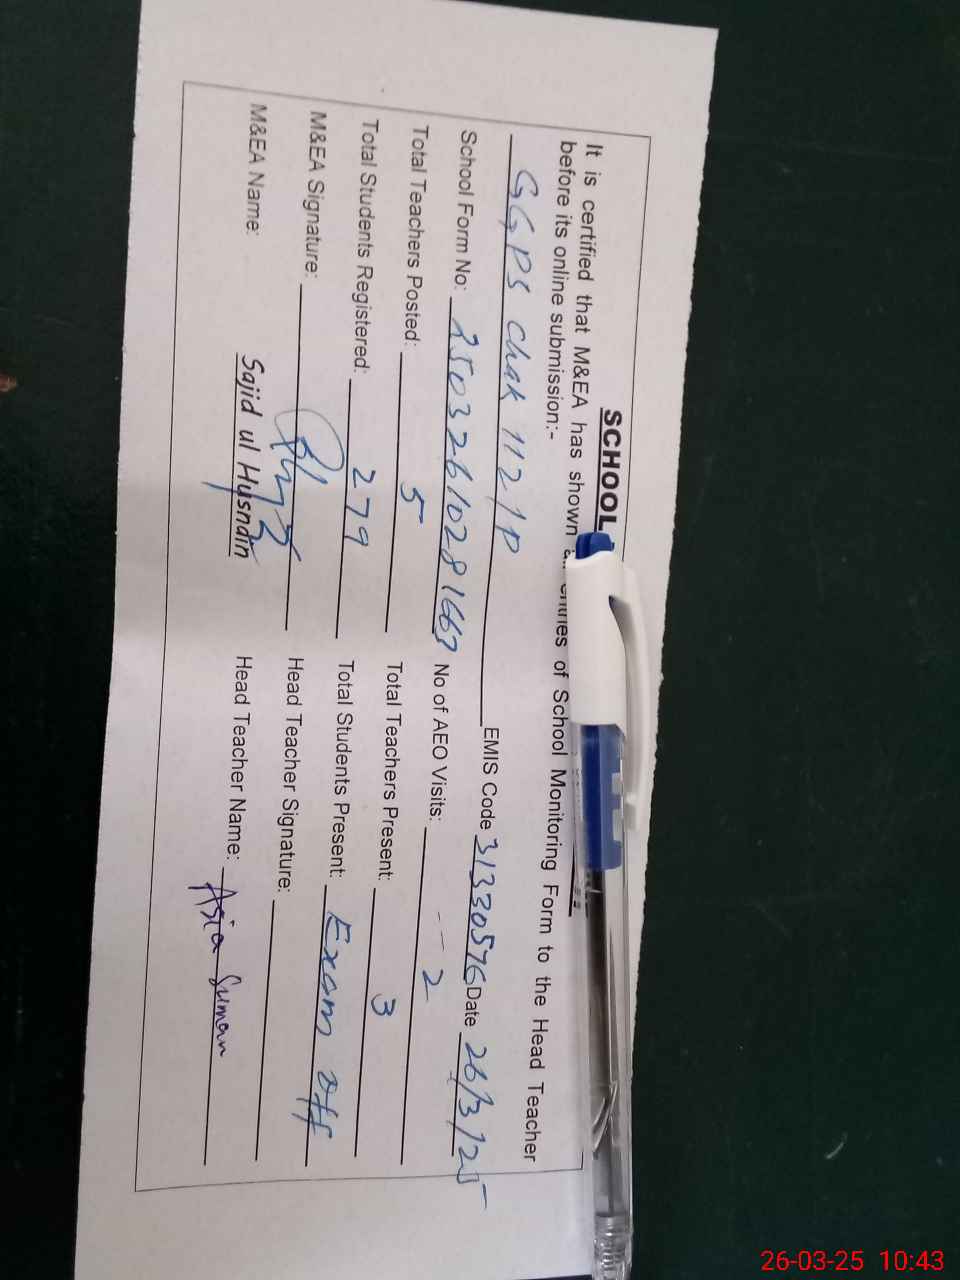 SCHOOL
It is certified that M&EA has shown entries of School Monitoring Form to the Head Teacher
before its online submission:-
GGPS chak 112/P EMIS Code 31330576 Date 26/3/25
School Form No: 2503261028166 No of AEO Visits: -- 2
Total Teachers Posted: 5 Total Teachers Present: 3
Total Students Registered: 279 Total Students Present: Exam off
M&EA Signature: Head Teacher Signature:
M&EA Name: Sajid ul Husndin Head Teacher Name: Asia Suman
26-03-25 10:43